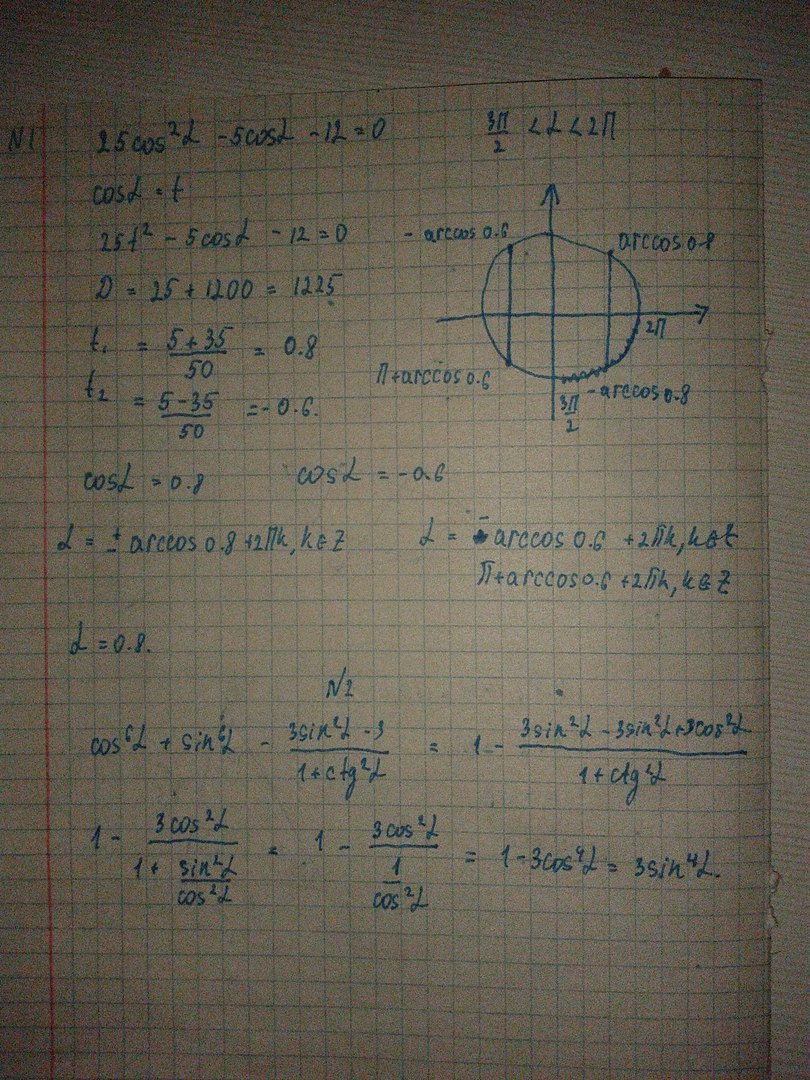 N1 25cos²α - 5cosα - 12 = 0 3π/2 < α < 2π
cosα = t
25t² - 5cosα - 12 = 0
D = 25 + 1200 = 1225
t₁ = (5 + 35)/50 = 0.8
t₂ = (5 - 35)/50 = -0.6.
- arccos 0.6
arccos 0.8
2π
π + arccos 0.6
- arccos 0.8
3π/2
cosα = 0.8 cosα = -0.6
α = ± arccos 0.8 + 2πk, k ∈ Z α = - arccos 0.6 + 2πk, k ∈ Z
π + arccos 0.6 + 2πk, k ∈ Z
α = 0.8.
N2
cos⁶α + sin⁶α - (3sin²α - 3)/(1 + ctg²α) = 1 - (3sin²α - 3sin²α + 3cos²α)/(1 + ctg²α)
1 - 3cos²α/(1 + sin²α/cos²α) = 1 - 3cos²α/(1/cos²α) = 1 - 3cos⁴α = 3sin⁴α.